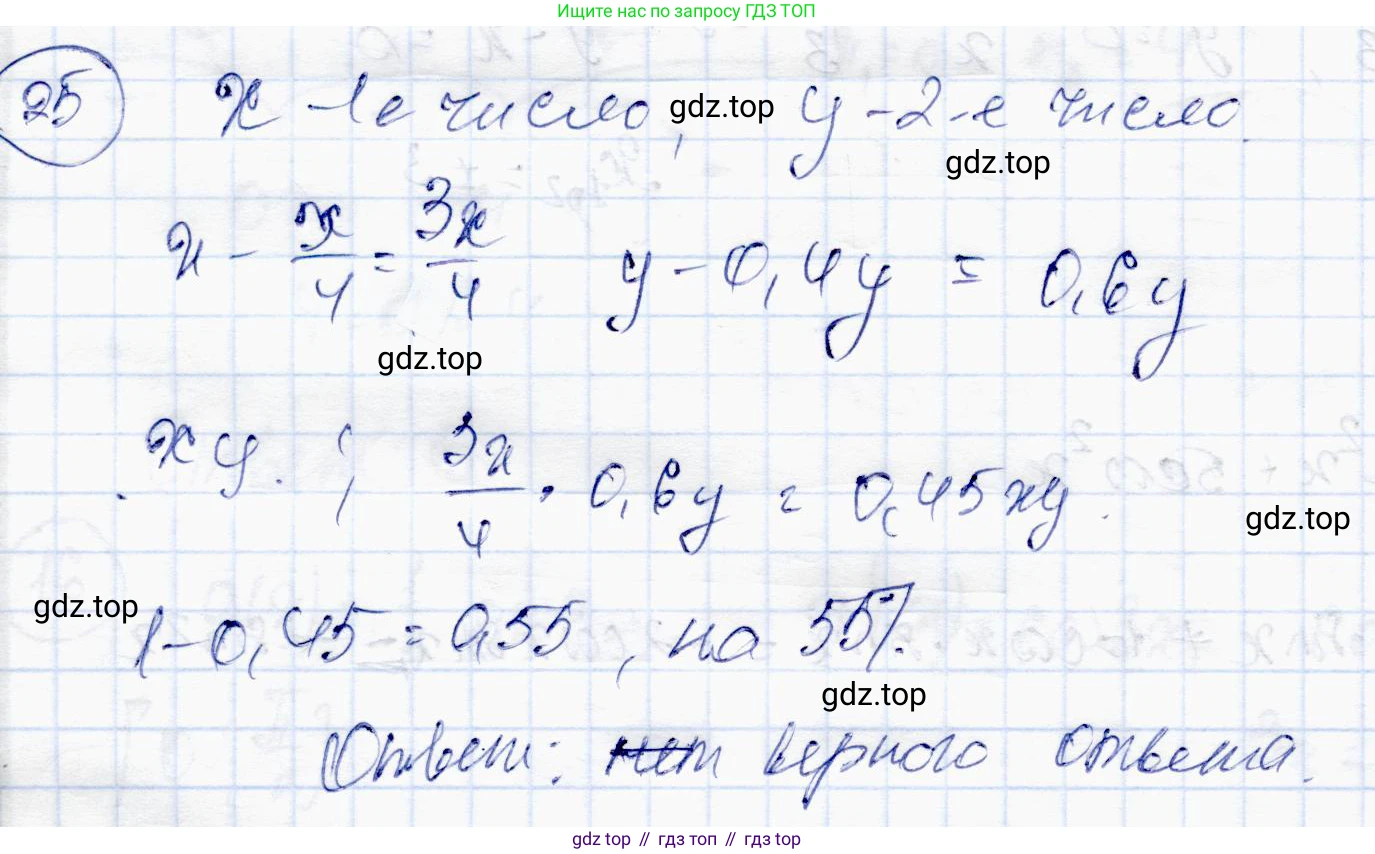 Ищите нас по запросу ГДЗ ТОП
25 x - 1е число, gdz.top y - 2-е число.
gdz.top
x - x/4 = 3x/4 y - 0,4y = 0,6y
gdz.top
xy. ; 3x/4 · 0,6y = 0,45xy.
gdz.top
gdz.top
1 - 0,45 = 0,55, на 55%.
gdz.top
Ответ: нет верного ответа.
gdz.top // гдз топ // gdz.top